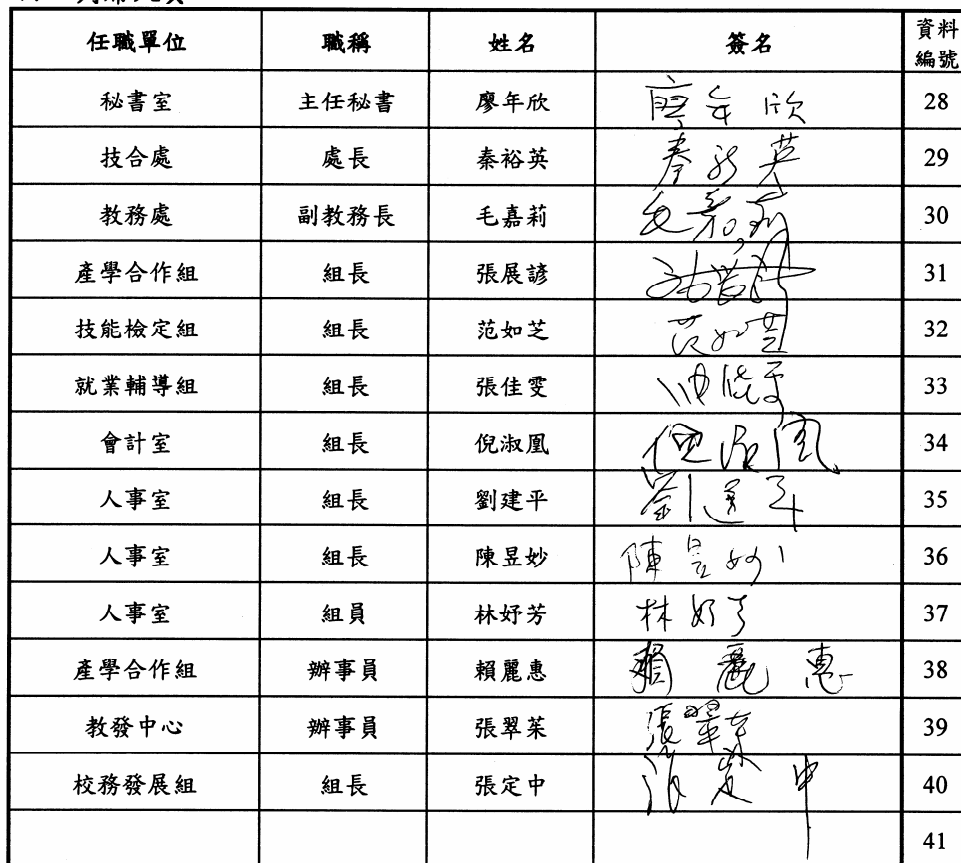 任職單位 職稱 姓名 簽名 資料編號
秘書室 主任秘書 廖年欣 廖年欣 28
技合處 處長 秦裕英 秦裕英 29
教務處 副教務長 毛嘉莉 毛嘉莉 30
產學合作組 組長 張展諺 31
技能檢定組 組長 范如芝 范如芝 32
就業輔導組 組長 張佳雯 33
會計室 組長 倪淑凰 倪淑凰 34
人事室 組長 劉建平 劉建平 35
人事室 組長 陳昱妙 陳昱妙 36
人事室 組員 林妤芳 林妤芳 37
產學合作組 辦事員 賴麗惠 賴麗惠 38
教發中心 辦事員 張翠茱 張翠茱 39
校務發展組 組長 張定中 張定中 40
41